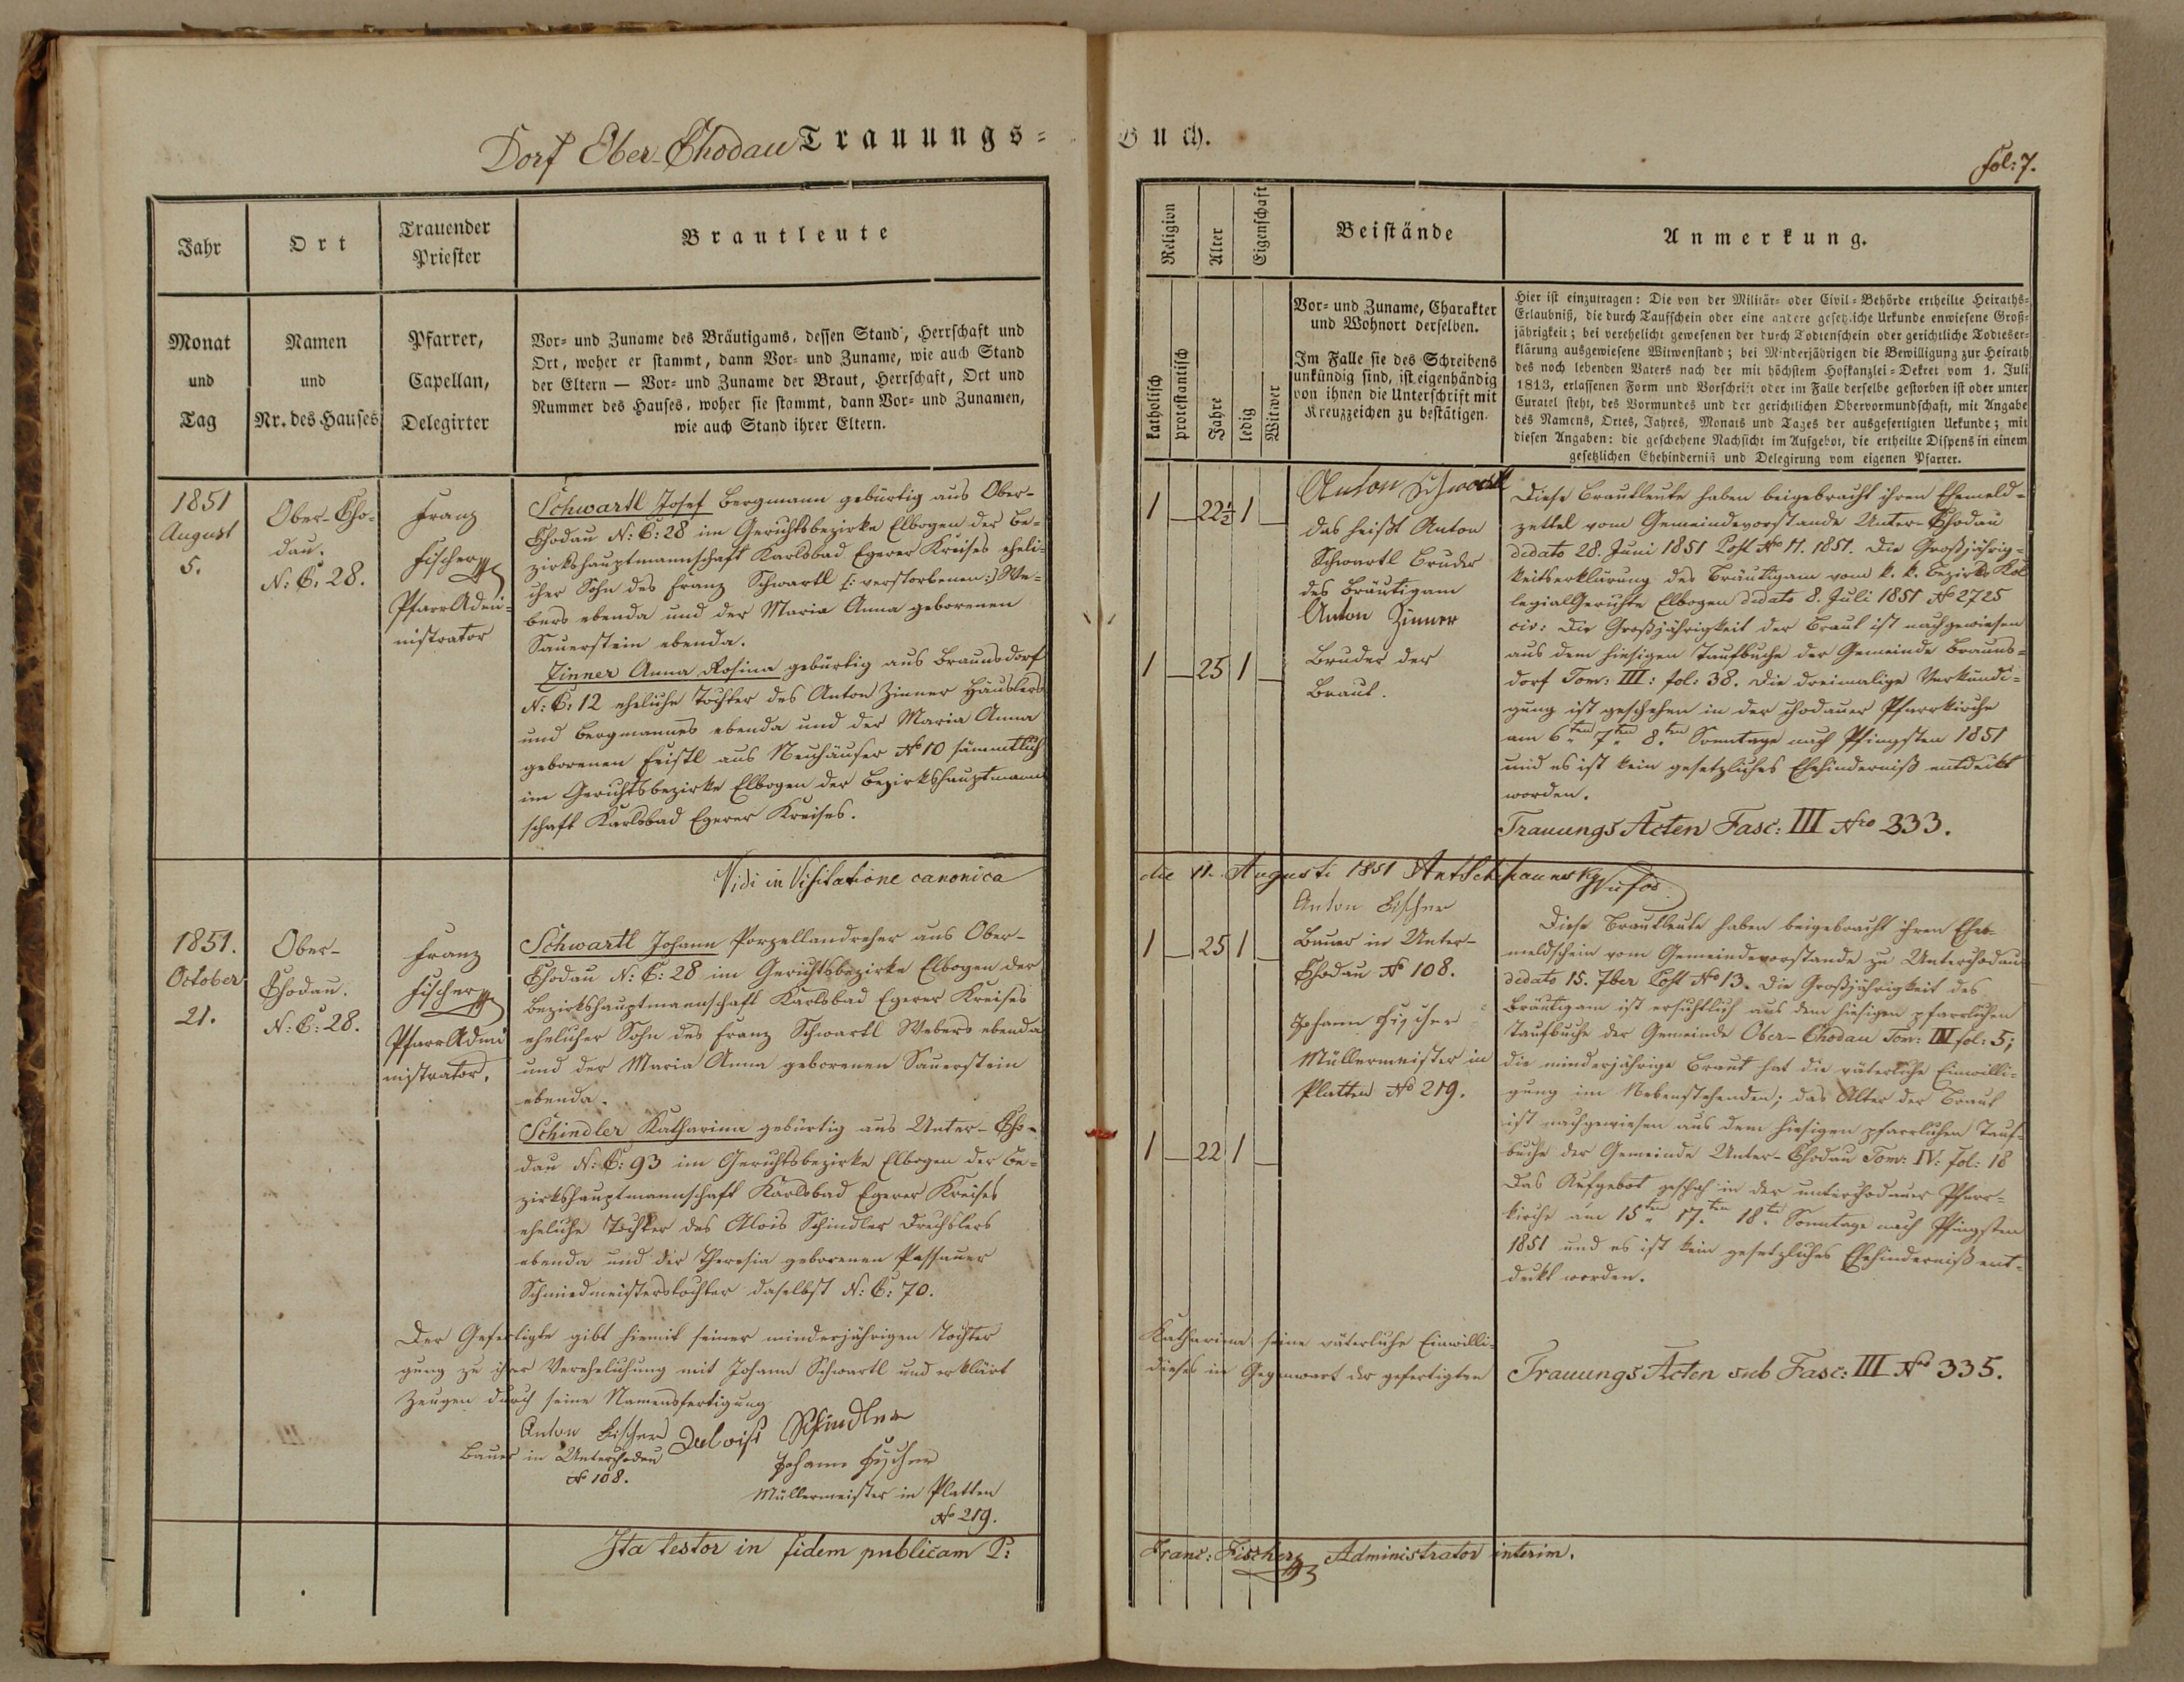 Dorf Ober-Chodau Trauungs-
Buch.
fol: 7.
Jahr
Ort
Trauender
Priester
Brautleute
Religion
Alter
Eigenschaft
Beistände
Anmerkung.
Monat
und
Tag
Namen
und
Nr. des Hauses
Pfarrer,
Capellan,
Delegirter
Vor- und Zuname des Bräutigams, dessen Stand, Herrschaft und
Ort, woher er stammt, dann Vor- und Zuname, wie auch Stand
der Eltern — Vor- und Zuname der Braut, Herrschaft, Ort und
Nummer des Hauses, woher sie stammt, dann Vor- und Zunamen,
wie auch Stand ihrer Eltern.
katholisch
protestantisch
Jahre
ledig
Witwer
Vor- und Zuname, Charakter
und Wohnort derselben.
Im Falle sie des Schreibens
unkündig sind, ist eigenhändig
von ihnen die Unterschrift mit
Kreuzzeichen zu bestätigen.
Hier ist einzutragen: Die von der Militär- oder Civil-Behörde ertheilte Heiraths-
Erlaubniß, die durch Taufschein oder eine andere gesetzliche Urkunde enwiesene Groß-
jährigkeit; bei verehelicht gewesenen der durch Todtenschein oder gerichtliche Todteser-
klärung ausgewiesene Witwenstand; bei Minderjährigen die Bewilligung zur Heirath
des noch lebenden Vaters nach der mit höchstem Hofkanzlei-Dekret vom 1. Juli
1813, erlassenen Form und Vorschrift oder im Falle derselbe gestorben ist oder unter
Curatel steht, des Vormundes und der gerichtlichen Obervormundschaft, mit Angabe
des Namens, Ortes, Jahres, Monats und Tages der ausgefertigten Urkunde; mit
diesen Angaben: die geschehene Nachsicht im Aufgebot, die ertheilte Dispens in einem
gesetzlichen Ehehinderniß und Delegirung vom eigenen Pfarrer.
1851
August
5.
Ober-Cho-
dau.
N: C: 28.
Franz
Fischer
PfarrAdmi-
nistrator
Schwartl Josef Bergmann gebürtig aus Ober-
Chodau N: C: 28 im Gerichtsbezirke Elbogen der Be-
zirkshauptmannschaft Karlsbad Egerer Kreises eheli-
cher Sohn des Franz Schwartl /: verstorbenen :/ We-
bers ebenda und der Maria Anna geborenen
Sauerstein ebenda.
Zinner Anna Rosina gebürtig aus Braunsdorf
N: C: 12 eheliche Tochter des Anton Zinner Häuslers
und Bergmannes ebenda und der Maria Anna
geborenen Feistl aus Neuhäuser No 10 sämmtlich
im Gerichtsbezirke Elbogen der Bezirkshauptmann
schaft Karlsbad Egerer Kreises.
1 22½ 1
1 25 1
Anton Schwartl
das heißt Anton
Schwartl Bruder
des Bräutigam
Anton Zinner
Bruder der
Braut.
Diese Brautleute haben beigebracht ihren Ehemeld-
zettel vom Gemeindevorstande Unter-Chodau
dedato 28. Juni 1851 Post Nro 11. 1851. Die Großjährig-
keitserklärung des Bräutigam vom k. k. Bezirks Kol
legialGerichte Elbogen dedato 8. Juli 1851 No 2725
civ: Die Großjährigkeit der Braut ist nachgewiesen
aus dem hiesigen Taufbuche der Gemeinde Brauns-
dorf Tom: III: fol: 38. Die dreimalige Verkündi-
gung ist geschehen in der chodauer Pfarrkirche
am 6ten 7ten 8ten Sonntage nach Pfingsten 1851
und es ist kein gesetzliches Ehehinderniß entdeckt
worden.
Trauungs Acten Fasc: III Nro 333.
Vidi in Visitatione canonica
die 11. Augusti 1851
1851.
October
21.
Ober-
Chodau.
N: C: 28.
Franz
Fischer
PfarrAdmi
nistrator.
Schwartl Johann Porzellandreher aus Ober-
Chodau N: C: 28 im Gerichtsbezirke Elbogen der
Bezirkshauptmannschaft Karlsbad Egerer Kreises
ehelicher Sohn des Franz Schwartl Webers ebenda
und der Maria Anna geborenen Sauerstein
ebenda.
Schindler Katharina gebürtig aus Unter-Cho-
dau N: C: 93 im Gerichtsbezirke Elbogen der Be-
zirkshauptmannschaft Karlsbad Egerer Kreises
eheliche Tochter des Alois Schindler Drechslers
ebenda und der Theresia geborenen Passauer
Schmiedmeisterstochter daselbst N: C: 70.
1 25 1
1 22 1
Anton Fischer
Bauer in Unter-
Chodau No 108.
Johann Fischer
Müllermeister in
Platten No 219.
Diese Brautleute haben beigebracht ihren Ehe-
meldschein vom Gemeindevorstande zu Unterchodau
dedato 15. 7ber Post No 13. Die Großjährigkeit des
Bräutigam ist ersichtlich aus dem hiesigen pfarrlichen
Taufbuche der Gemeinde Ober-Chodau Tom: III fol: 5;
die minderjährige Braut hat die väterliche Einwilli-
gung im Nebenstehenden; das Alter der Braut
ist nachgewiesen aus dem hiesigen pfarrlichen Tauf-
buche der Gemeinde Unter-Chodau Tom: IV: fol: 18
Das Aufgebot geschah in der unterchodauer Pfarr-
kirche am 15ten 17ten 18ten Sonntage nach Pfingsten
1851 und es ist kein gesetzliches Ehehinderniß ent-
deckt worden.
Der Gefertigte gibt hiemit seiner minderjährigen Tochter Katharina seine väterliche Einwilli-
gung zu ihrer Verehelichung mit Johann Schwartl und erklärt dieses in Gegenwart der gefertigten
Zeugen durch seine Namensfertigung
Anton Fischer
Bauer in Unterchodau
No 108.
Schindler
Johann Fischer
Müllermeister in Platten
No 219.
Trauungs Acten sub Fasc: III No 335.
Ita testor in fidem publicam P: Franc: Fischer Administrator interim.